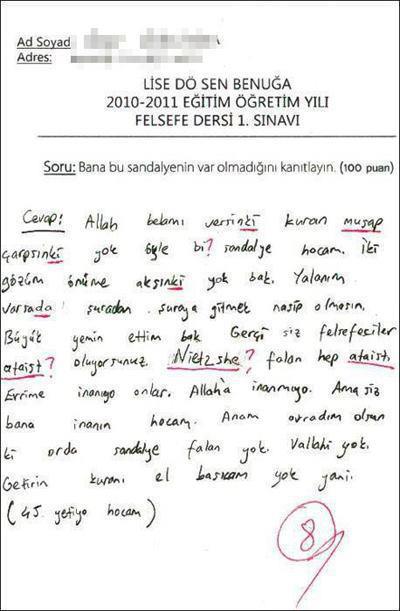 Ad Soyad
Adres:
LİSE DÖ SEN BENUĞA
2010-2011 EĞİTİM ÖĞRETİM YILI
FELSEFE DERSİ 1. SINAVI
Soru: Bana bu sandalyenin var olmadığını kanıtlayın. (100 puan)
Cevap: Allah belamı versinki kuran muşap
çarpsınki yok öyle bi? sandalye hocam. İki
gözüm önüme aksınki yok bak. Yalanım
varsada şuradan şuraya gitmek nasip olmasın.
Büyük yemin ettim bak Gerçi siz felsefeciler
ataist? oluyorsunuz. Nietzshe? falan hep ataist.
Evrime inanıyo onlar. Allah'a inanmıyo. Ama siz
bana inanın hocam. Anam avradım olsun
ki orda sandalye falan yok. Vallahi yok.
Getirin kuranı el basıcam yok yani.
(45 yetiyo hocam)
8